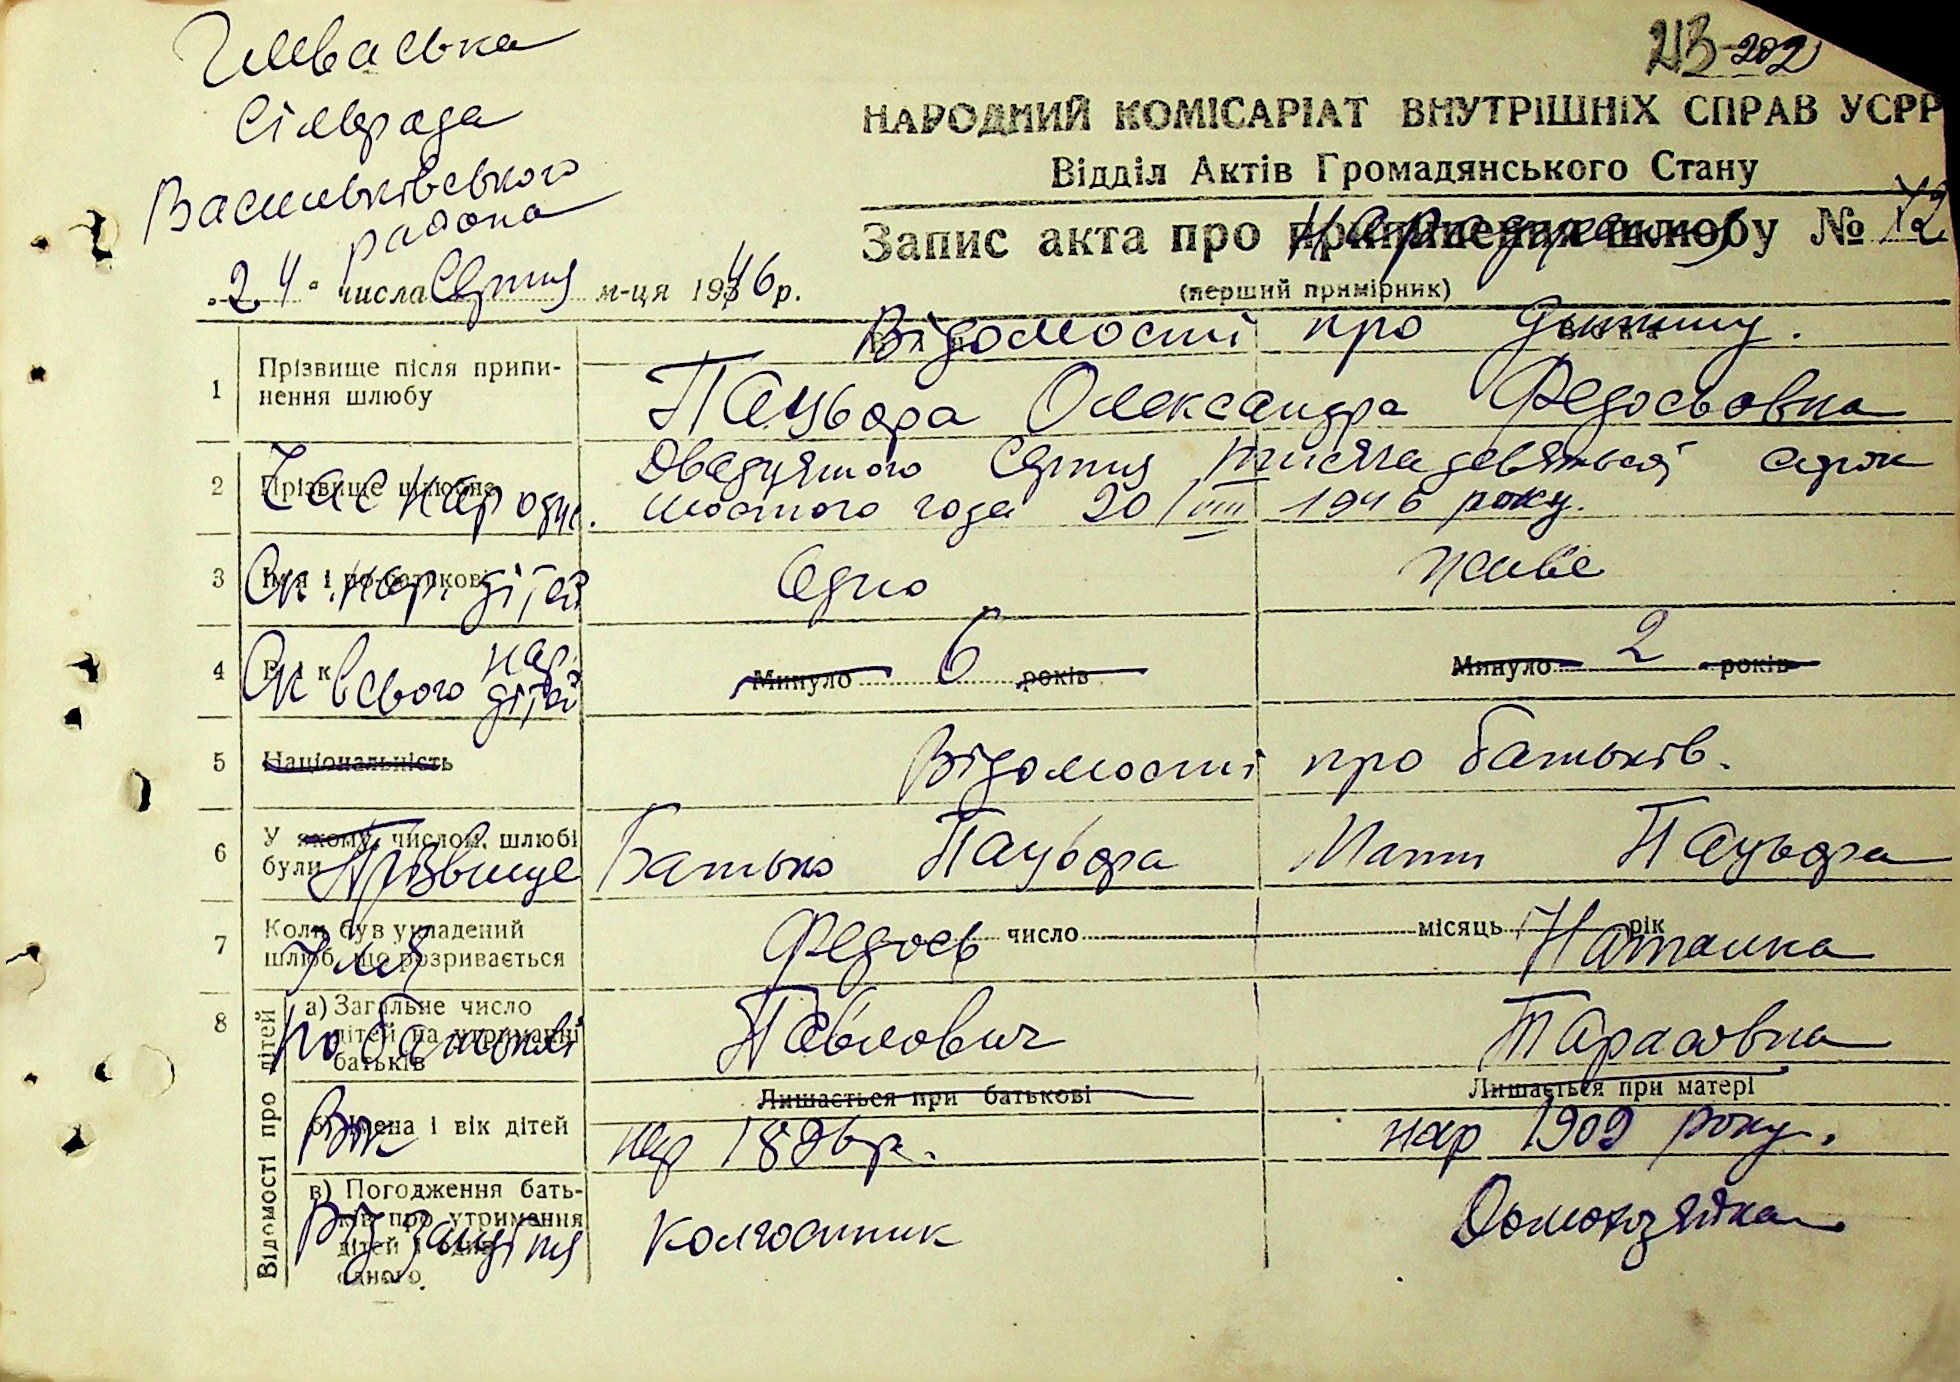 сільрада
Васильківського
района
213 202
НАРОДНИЙ КОМІСАРІАТ ВНУТРІШНІХ СПРАВ УСРР
Відділ Актів Громадянського Стану
Запис акта про припинення шлюбу № 72
народження
(перший примірник)
"24" числа Серпня м-ця 1946 р.
Відомості про дитину.
1 Прізвище після припинення шлюбу
Пацьора Олександра Федосьовна
2 Прізвище шлюбне
Час народж.
Двадцятого Серпня тисяча девятьсот сорок
шостого года 20/VIII 1946 року.
3 Ім'я і по-батькові
Ск. нар. дітей Одно живе
4 Вік
Ск всього нар. дітей Минуло 6 років Минуло 2 років
5 Національність
Відомості про батьків.
6 У якому, числом, шлюбі були
Прізвище Батько Пацьора Мати Пацьора
7 Коли був укладений шлюб, що розривається
число місяць рік
Імя Федось Наталка
Відомості про дітей
8 а) Загальне число дітей на утриманні батьків
по батькові Павлович Тарасовна
Лишається при батькові Лишається при матері
б) Імена і вік дітей
Вік нар 1896 р. нар 1909 року.
в) Погодження батьків про утримання дітей і одне одного
Від заняття колгоспник Домохозяйка